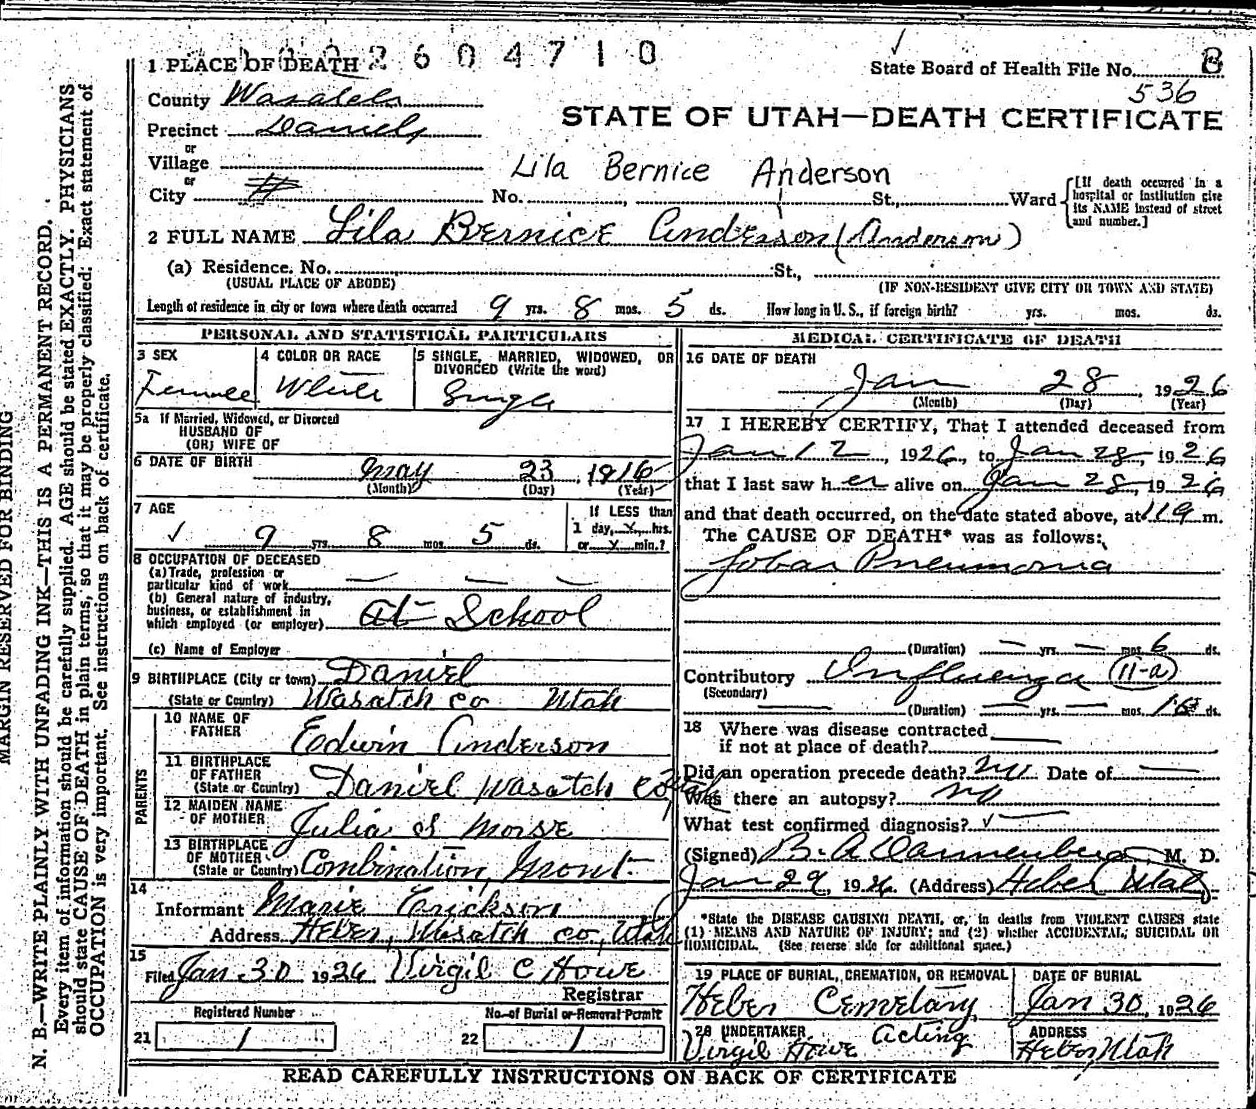 2 6 0 4 7 1 0
1 PLACE OF DEATH
State Board of Health File No. 8
536
County Wasatch
STATE OF UTAH—DEATH CERTIFICATE
Precinct Daniels
or
Village
Lila Bernice Anderson
or
City No. St., Ward
[If death occurred in a hospital or institution give its NAME instead of street and number.]
2 FULL NAME Lila Bernice Anderson (Anderson)
(a) Residence. No. St.,
(USUAL PLACE OF ABODE) (IF NON-RESIDENT GIVE CITY OR TOWN AND STATE)
Length of residence in city or town where death occurred 9 yrs. 8 mos. 5 ds. How long in U. S., if foreign birth? yrs. mos. ds.
PERSONAL AND STATISTICAL PARTICULARS
3 SEX 4 COLOR OR RACE 5 SINGLE, MARRIED, WIDOWED, OR DIVORCED (Write the word)
Female White Single
5a If Married, Widowed, or Divorced
HUSBAND OF
(OR) WIFE OF
6 DATE OF BIRTH May 23, 1916
(Month) (Day) (Year)
7 AGE If LESS than
9 yrs. 8 mos. 5 ds. 1 day, x hrs.
or x min.?
8 OCCUPATION OF DECEASED
(a) Trade, profession or
particular kind of work
(b) General nature of industry,
business, or establishment in
which employed (or employer) At School
(c) Name of Employer
9 BIRTHPLACE (City or town) Daniel
(State or Country) Wasatch Co Utah
PARENTS
10 NAME OF
FATHER Edwin Anderson
11 BIRTHPLACE
OF FATHER
(State or Country) Daniel Wasatch Co Utah
12 MAIDEN NAME
OF MOTHER Julia S Morse
13 BIRTHPLACE
OF MOTHER
(State or Country) Combination, Mont.
14
Informant Marie Erickson
Address Heber, Wasatch Co, Utah
15
Filed Jan 30 1926 Virgil C Howe
Registrar
Registered Number No. of Burial or Removal Permit
21 1 22 1
MEDICAL CERTIFICATE OF DEATH
16 DATE OF DEATH
Jan 28 1926
(Month) (Day) (Year)
17 I HEREBY CERTIFY, That I attended deceased from
Jan 12, 1926, to Jan 28, 1926
that I last saw her alive on Jan 28, 1926
and that death occurred, on the date stated above, at m.
The CAUSE OF DEATH* was as follows:
Lobar Pneumonia
(Duration) yrs. mos. 6 ds.
Contributory Influenza (11-a)
(Secondary)
(Duration) yrs. mos. ds.
18 Where was disease contracted
if not at place of death?
Did an operation precede death? no Date of
Was there an autopsy? no
What test confirmed diagnosis?
(Signed) M. D.
Jan 29, 1926. (Address) Heber Utah
*State the DISEASE CAUSING DEATH, or, in deaths from VIOLENT CAUSES state
(1) MEANS AND NATURE OF INJURY; and (2) whether ACCIDENTAL, SUICIDAL OR
HOMICIDAL. (See reverse side for additional space.)
19 PLACE OF BURIAL, CREMATION, OR REMOVAL DATE OF BURIAL
Heber Cemetary Jan 30, 1926
20 UNDERTAKER ADDRESS
Virgil Howe Acting Heber, Utah
READ CAREFULLY INSTRUCTIONS ON BACK OF CERTIFICATE
MARGIN RESERVED FOR BINDING
N. B.—WRITE PLAINLY WITH UNFADING INK—THIS IS A PERMANENT RECORD.
Every item of information should be carefully supplied. AGE should be stated EXACTLY. PHYSICIANS
should state CAUSE OF DEATH in plain terms, so that it may be properly classified. Exact statement of
OCCUPATION is very important. See instructions on back of certificate.